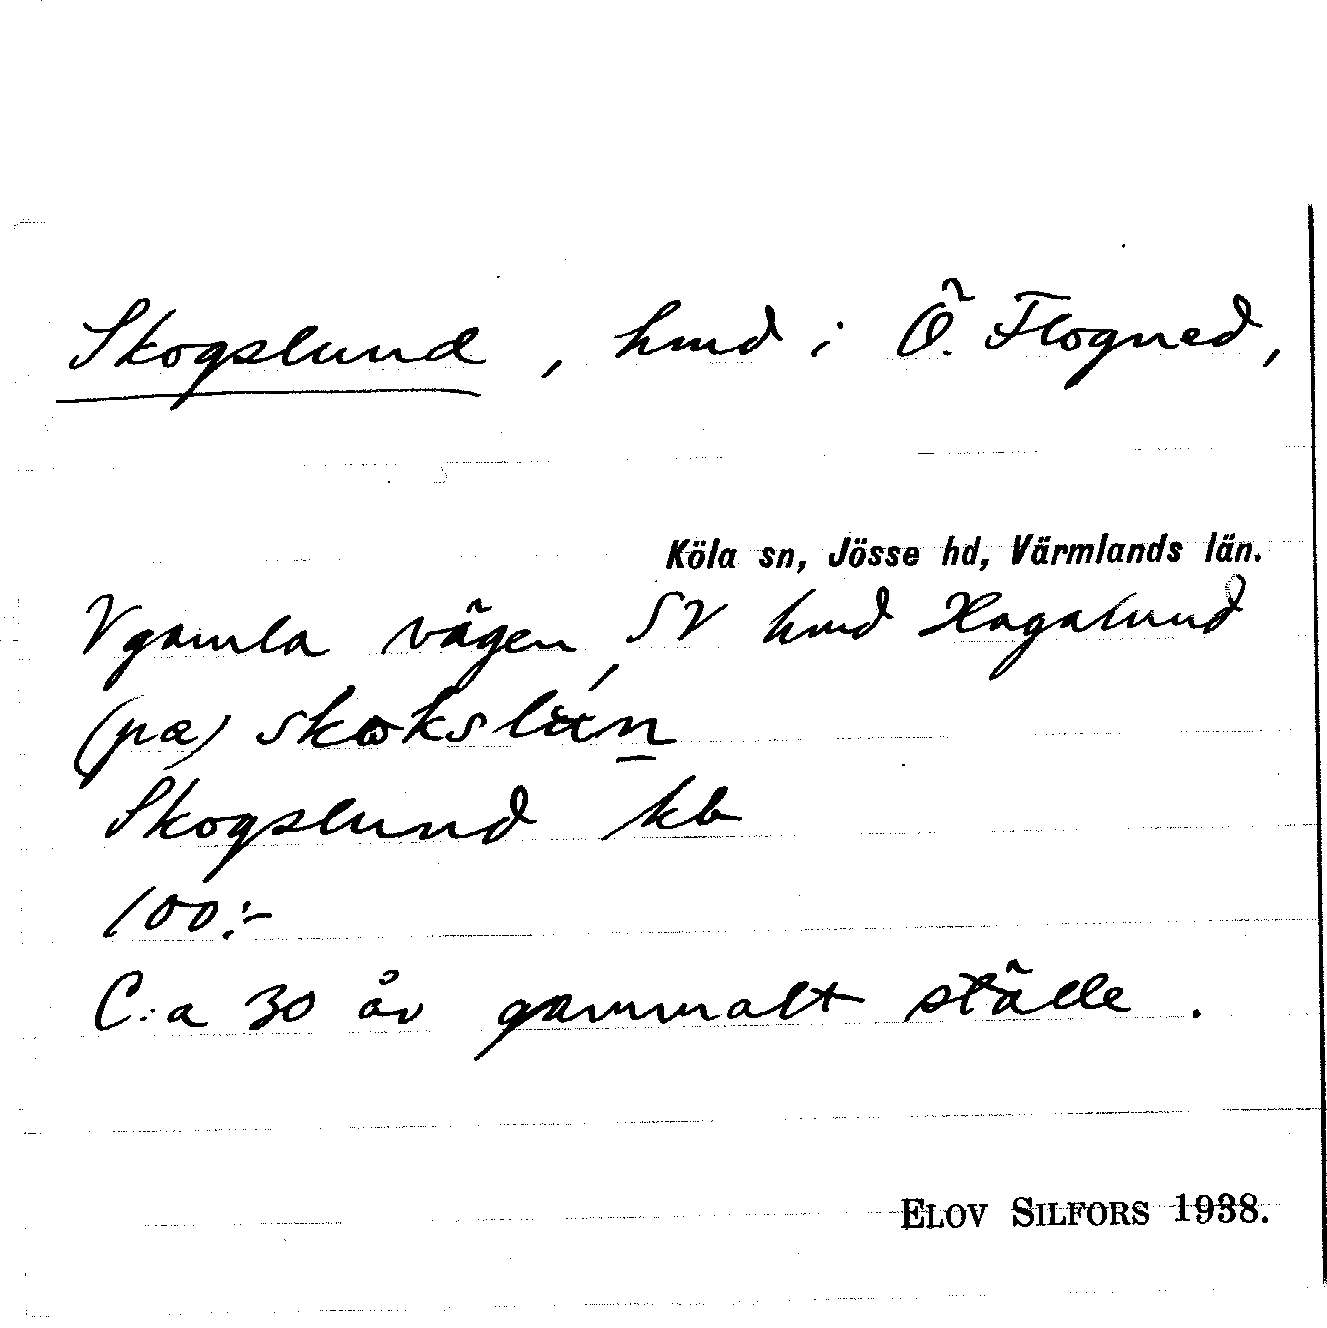 Skogslund, hmd i Ö. Flogned,
Köla sn, Jösse hd, Värmlands län.
V gamla vägen, SV hmd Hagalund
(pæ) skoksluń
Skogslund kb
100:-
C:a 30 år gammalt ställe.
ELOV SILFORS 1938.